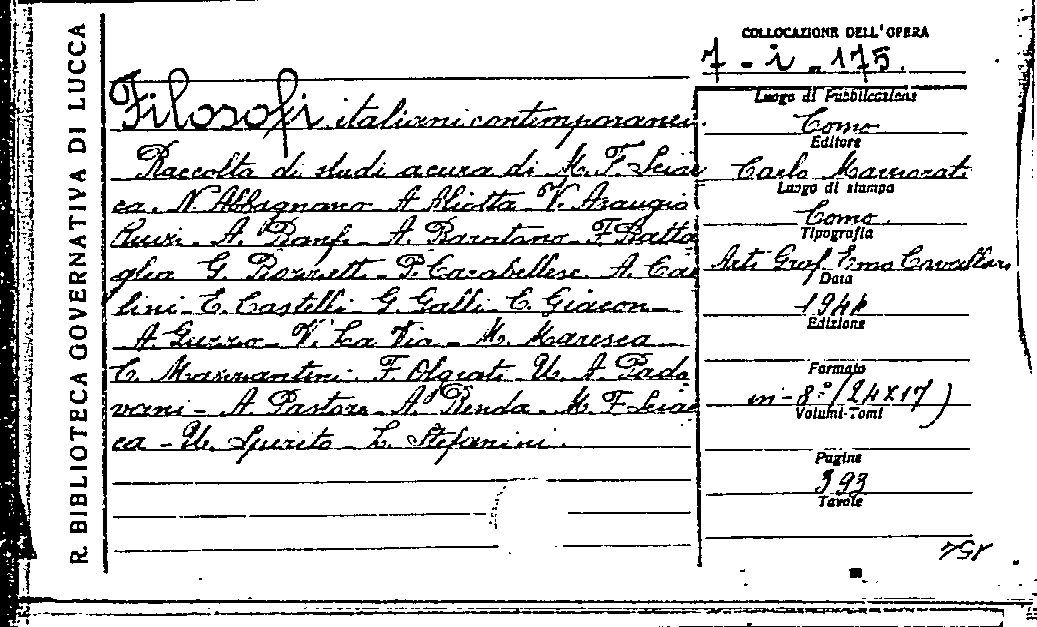 R. BIBLIOTECA GOVERNATIVA DI LUCCA
COLLOCAZIONE DELL'OPERA
7 - i - 175.
Filosofi italiani contemporanei.
Raccolta di studi a cura di M. F. Sciac
ca. N. Abbagnano A Aliotta V. Arangio
Ruiz - A. Banfi - A. Baratono - F. Batta
glia G. Bozzetti - P. Carabellese A. Car
lini - E. Castelli G. Galli C. Giacon -
A. Guzzo - V. La Via - M. Maresca -
C. Mazzantini - F. Olgiati - U. A. Pado
vani - A. Pastore - A. Renda - M. F. Sciac
ca - U. Spirito - L. Stefanini.
Luogo di Pubblicazione
Como
Editore
Carlo Marzorati
Luogo di stampa
Como.
Tipografia
Arti Graf. Emo Cavalleri
Data
1944
Edizione
Formato
in-8º (24X17)
Volumi-Tomi
Pagine
393
Tavole